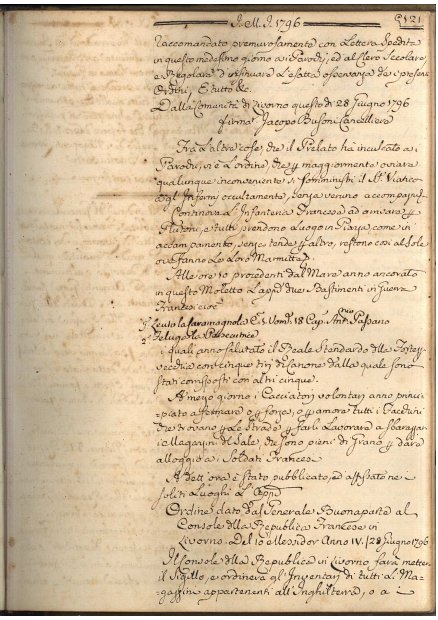 J. M. J. 1796
P 121
raccomandato premurosamente con Lettera Spedita
in questo medesimo giorno a i Parochi, ed al Clero Secolare,
e Regolare d'insinuare l'esatta osservanza de i presenti
Ordini, E tutto &c.
Dalla Comunità di Livorno questo dì 28 Giugno 1796
firm.º Jacopo Busoni Cancelliere
Frà l'altre cose, che il Prelato hà inculcato a i
Parochi, vi è L'ordine, che p maggiormente ovviare
qualunque inconveniente si somministri il SS. Viatico
agl'Infermi occultamente, senza veruno accompag.º
Continova L'Infanteria Francese ad arrivare p
Plutoni, e tutti prendono Luogo in Piazza come in
accampamento, senza tende p altro, restono così al Sole
ove fanno Le Loro Marmitte
Alle ore 10 procedenti dal Mare anno ancorato
in questo Moletto L'app.º due Bastimenti in Guerra
Francesi cioè
Leuto la Caramagnola C.1 Vom. 18 Cap. Ant. Passano
2º Felugo la
i quali anno salutato il Reale Stendardo dlla Fortezza
vecchia con cinque tiri di Canone dalla quale sono
stati corrisposti con altri cinque.
A mezo giorno i Cacciatori volontarj anno princi-
piato a fermare o p forza, o p amore tutti i Facchini
che trovano p Le Strade p farli Lavorare a sbarazzar-
ci i Magazzini del Sale, che sono pieni di Grano p dare
alloggio a i Soldati Francesi
A dett'ora è stato pubblicato, ed affissato ne
soliti Luoghi L'app.º
Ordine dato dal Generale Buonaparte al
Console dlla Republica Francese in
Livorno. Del 10 Messidor Anno IV. / 28 Giugno 1796
Il Console dlla Republica in Livorno farà metter
il Sigillo, e ordinerà gl'Inventarj di tutti L. Ma-
gazzini appartenenti all'Inghilterra, o a i